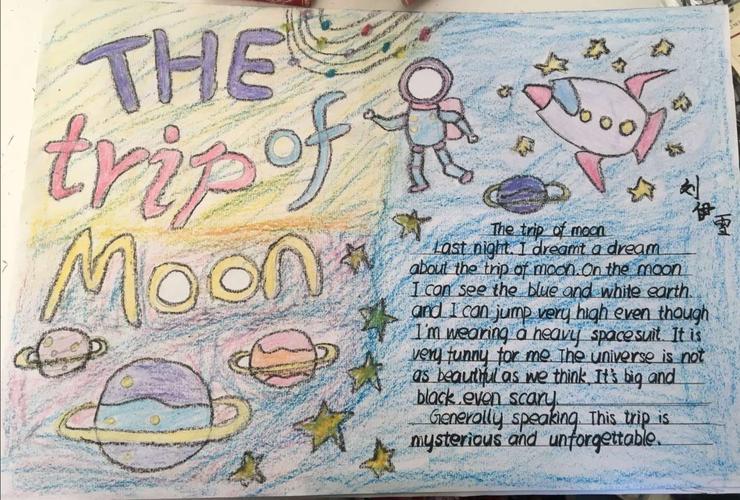 THE
trip of
Moon
The trip of moon
Last night. I dreamt a dream
about the trip of moon. On the moon
I can see the blue and white earth.
and I can jump very high even though
I'm wearing a heavy spacesuit. It is
very funny for me. The universe is not
as beautiful as we think. It's big and
black. even scary.
Generally speaking. This trip is
mysterious and unforgettable.
刘
伊
雪